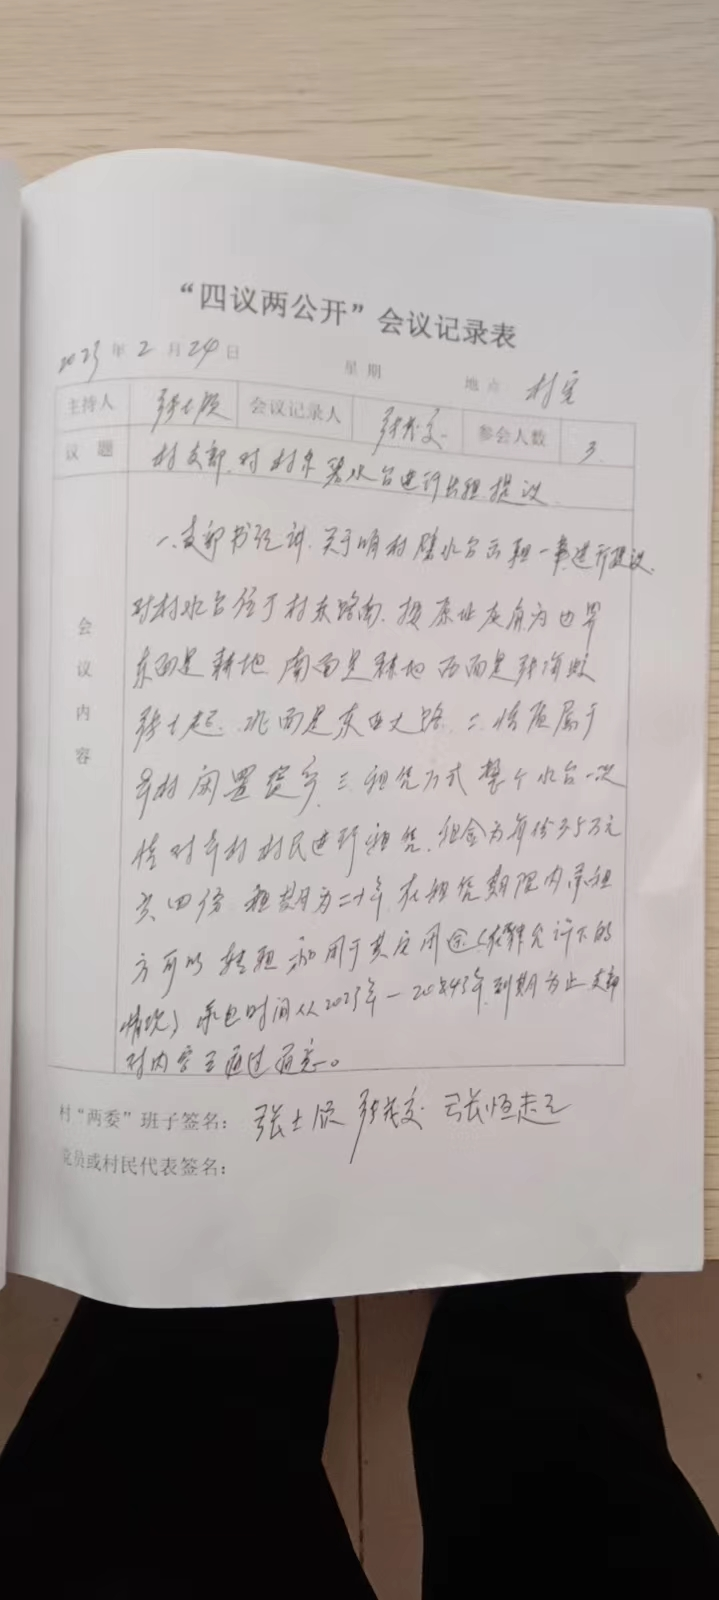 “四议两公开”会议记录表
2023年2月24日 星期 地点 村室
主持人 张士 会议记录人 张茂交 参会人数 3.
议题 村支部对村东 水台进行出租提议
会议内容
一、支部书记讲.关于咱村 水台出租一事进行提议.
对村水台位于村东路南.按原址灰角为边界
东面是耕地 南面是耕地 西面是张
张士起. 北面是东西大路. 二、性质属于
本村闲置 三、租凭方式 整个水台一次
性对本村村民进行租凭.租金为每份3.5万元
共四份 租期为二十年 在租凭期限内承租
方可以转租和用于其它用途(在 允许下的
情况) 承包时间从2023年—2043年.到期为止 支部
对内容 通过同意。
村“两委”班子签名: 张士 张茂交 张恒志
党员或村民代表签名: